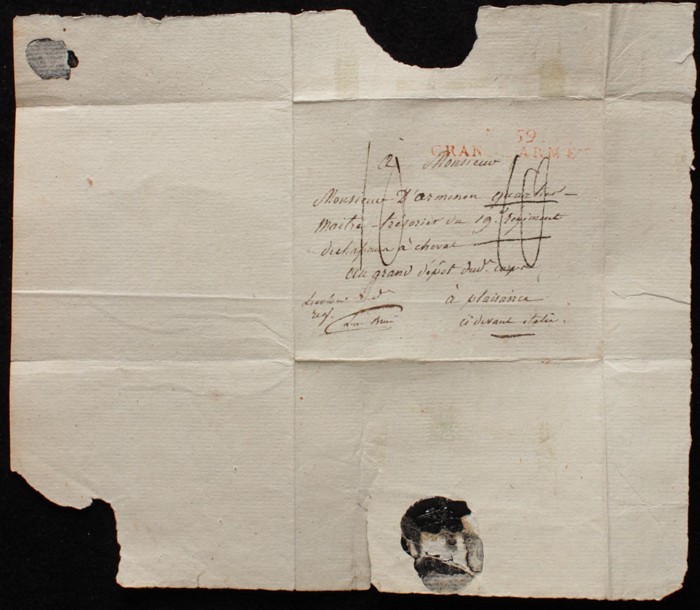 59
GRANDE ARMÉE
à Monsieur
Monsieur D'armenon quartier-
maitre-trésorier du 19e. régiment
de chasseurs à cheval
Au grand dépôt dud. corps
à plaisance
ci devant italie.